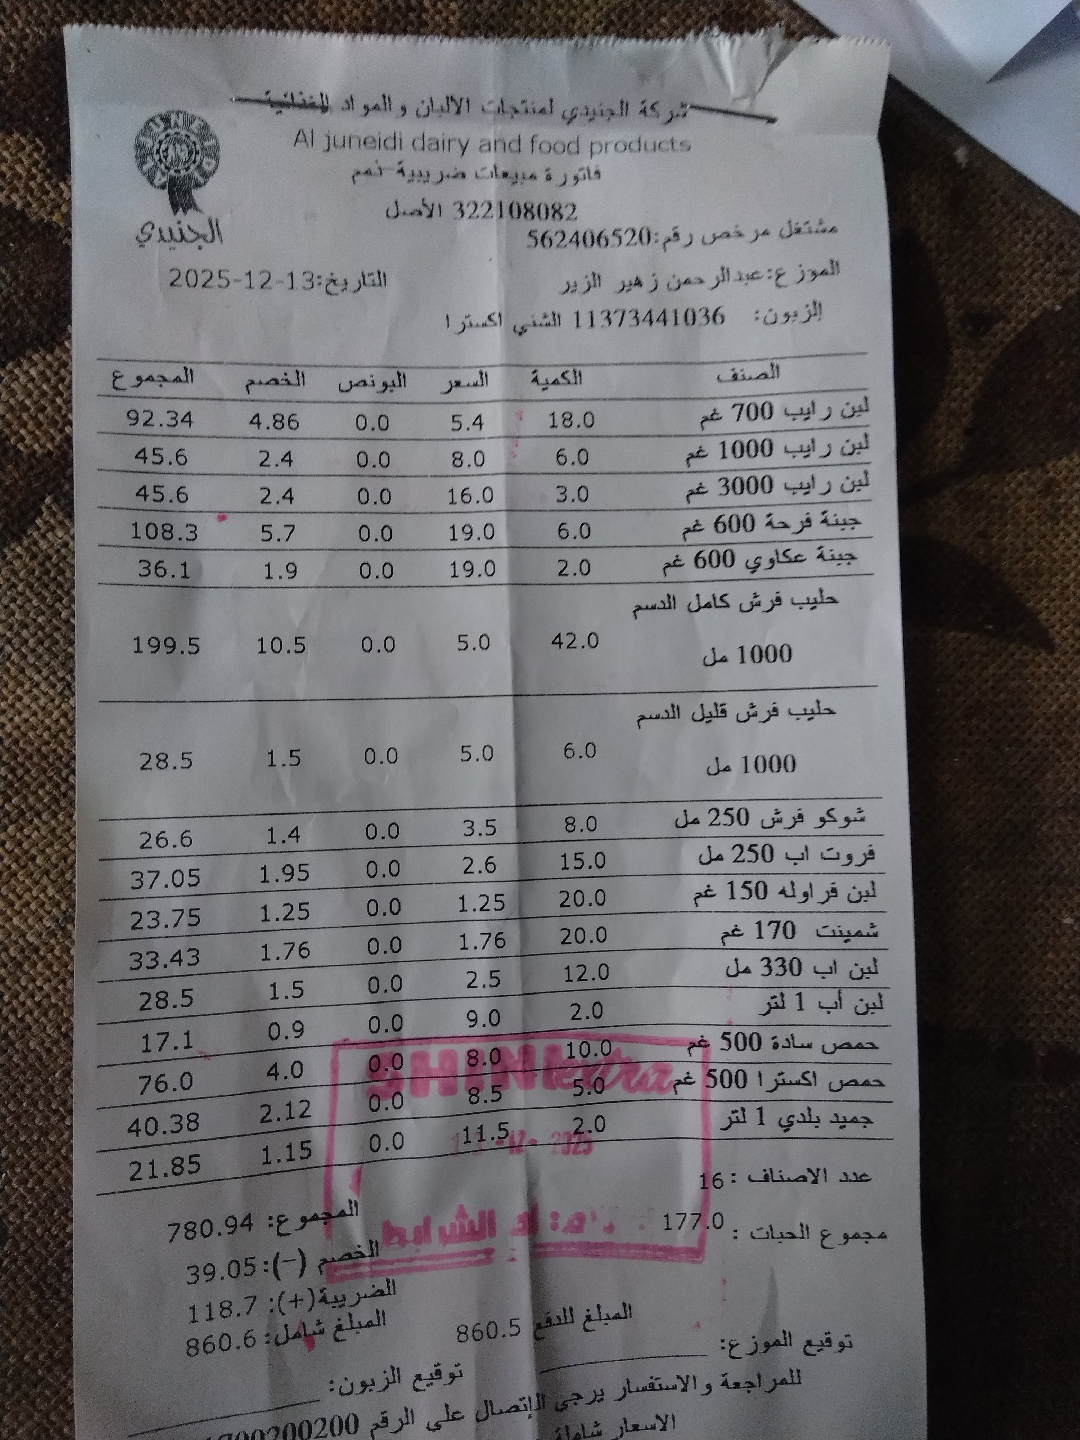 شركة الجنيدي لمنتجات الالبان والمواد الغذائية
Al juneidi dairy and food products
فاتورة مبيعات ضريبية ذمم
322108082 الأصل
الجنيدي
مشتغل مرخص رقم:562406520
الموزع:عبدالرحمن زهير الزير
التاريخ:13-12-2025
الزبون: 11373441036 الشني اكسترا
الصنف الكمية السعر البونص الخصم المجموع
لبن رايب 700 غم 18.0 5.4 0.0 4.86 92.34
لبن رايب 1000 غم 6.0 8.0 0.0 2.4 45.6
لبن رايب 3000 غم 3.0 16.0 0.0 2.4 45.6
جبنة فرحة 600 غم 6.0 19.0 0.0 5.7 108.3
جبنة عكاوي 600 غم 2.0 19.0 0.0 1.9 36.1
حليب فرش كامل الدسم
1000 مل 42.0 5.0 0.0 10.5 199.5
حليب فرش قليل الدسم
1000 مل 6.0 5.0 0.0 1.5 28.5
شوكو فرش 250 مل 8.0 3.5 0.0 1.4 26.6
فروت اب 250 مل 15.0 2.6 0.0 1.95 37.05
لبن فراوله 150 غم 20.0 1.25 0.0 1.25 23.75
شمينت 170 غم 20.0 1.76 0.0 1.76 33.43
لبن اب 330 مل 12.0 2.5 0.0 1.5 28.5
لبن أب 1 لتر 2.0 9.0 0.0 0.9 17.1
حمص سادة 500 غم 10.0 8.0 0.0 4.0 76.0
حمص اكسترا 500 غم 5.0 8.5 0.0 2.12 40.38
جميد بلدي 1 لتر 2.0 11.5 0.0 1.15 21.85
SHINI extra
2025
الشرابط
عدد الاصناف : 16
مجموع الحبات : 177.0
المجموع: 780.94
الخصم (-):39.05
الضريبة(+): 118.7
المبلغ شامل: 860.6
المبلغ للدفع 860.5
توقيع الموزع:
توقيع الزبون:
للمراجعة والاستفسار يرجى الإتصال على الرقم
الاسعار شاملة